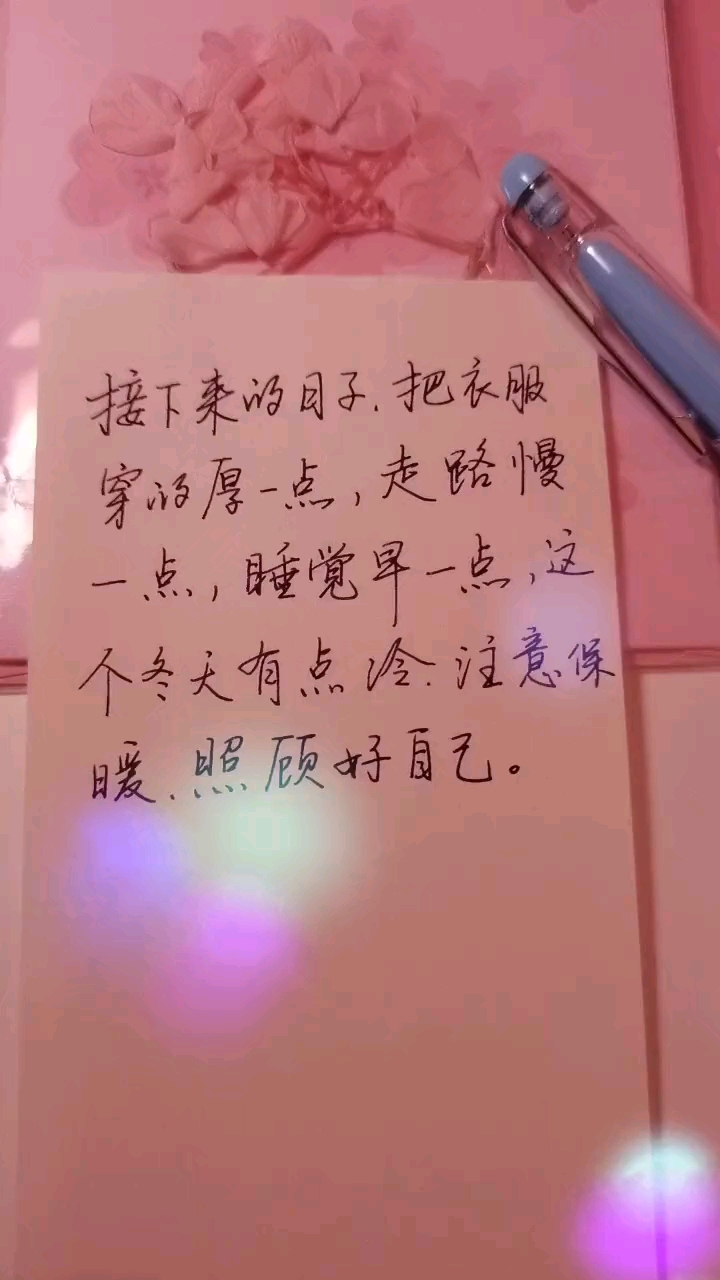 接下来的日子.把衣服
穿的厚一点,走路慢
一点,睡觉早一点,这
个冬天有点冷.注意保
暖.照顾好自己。